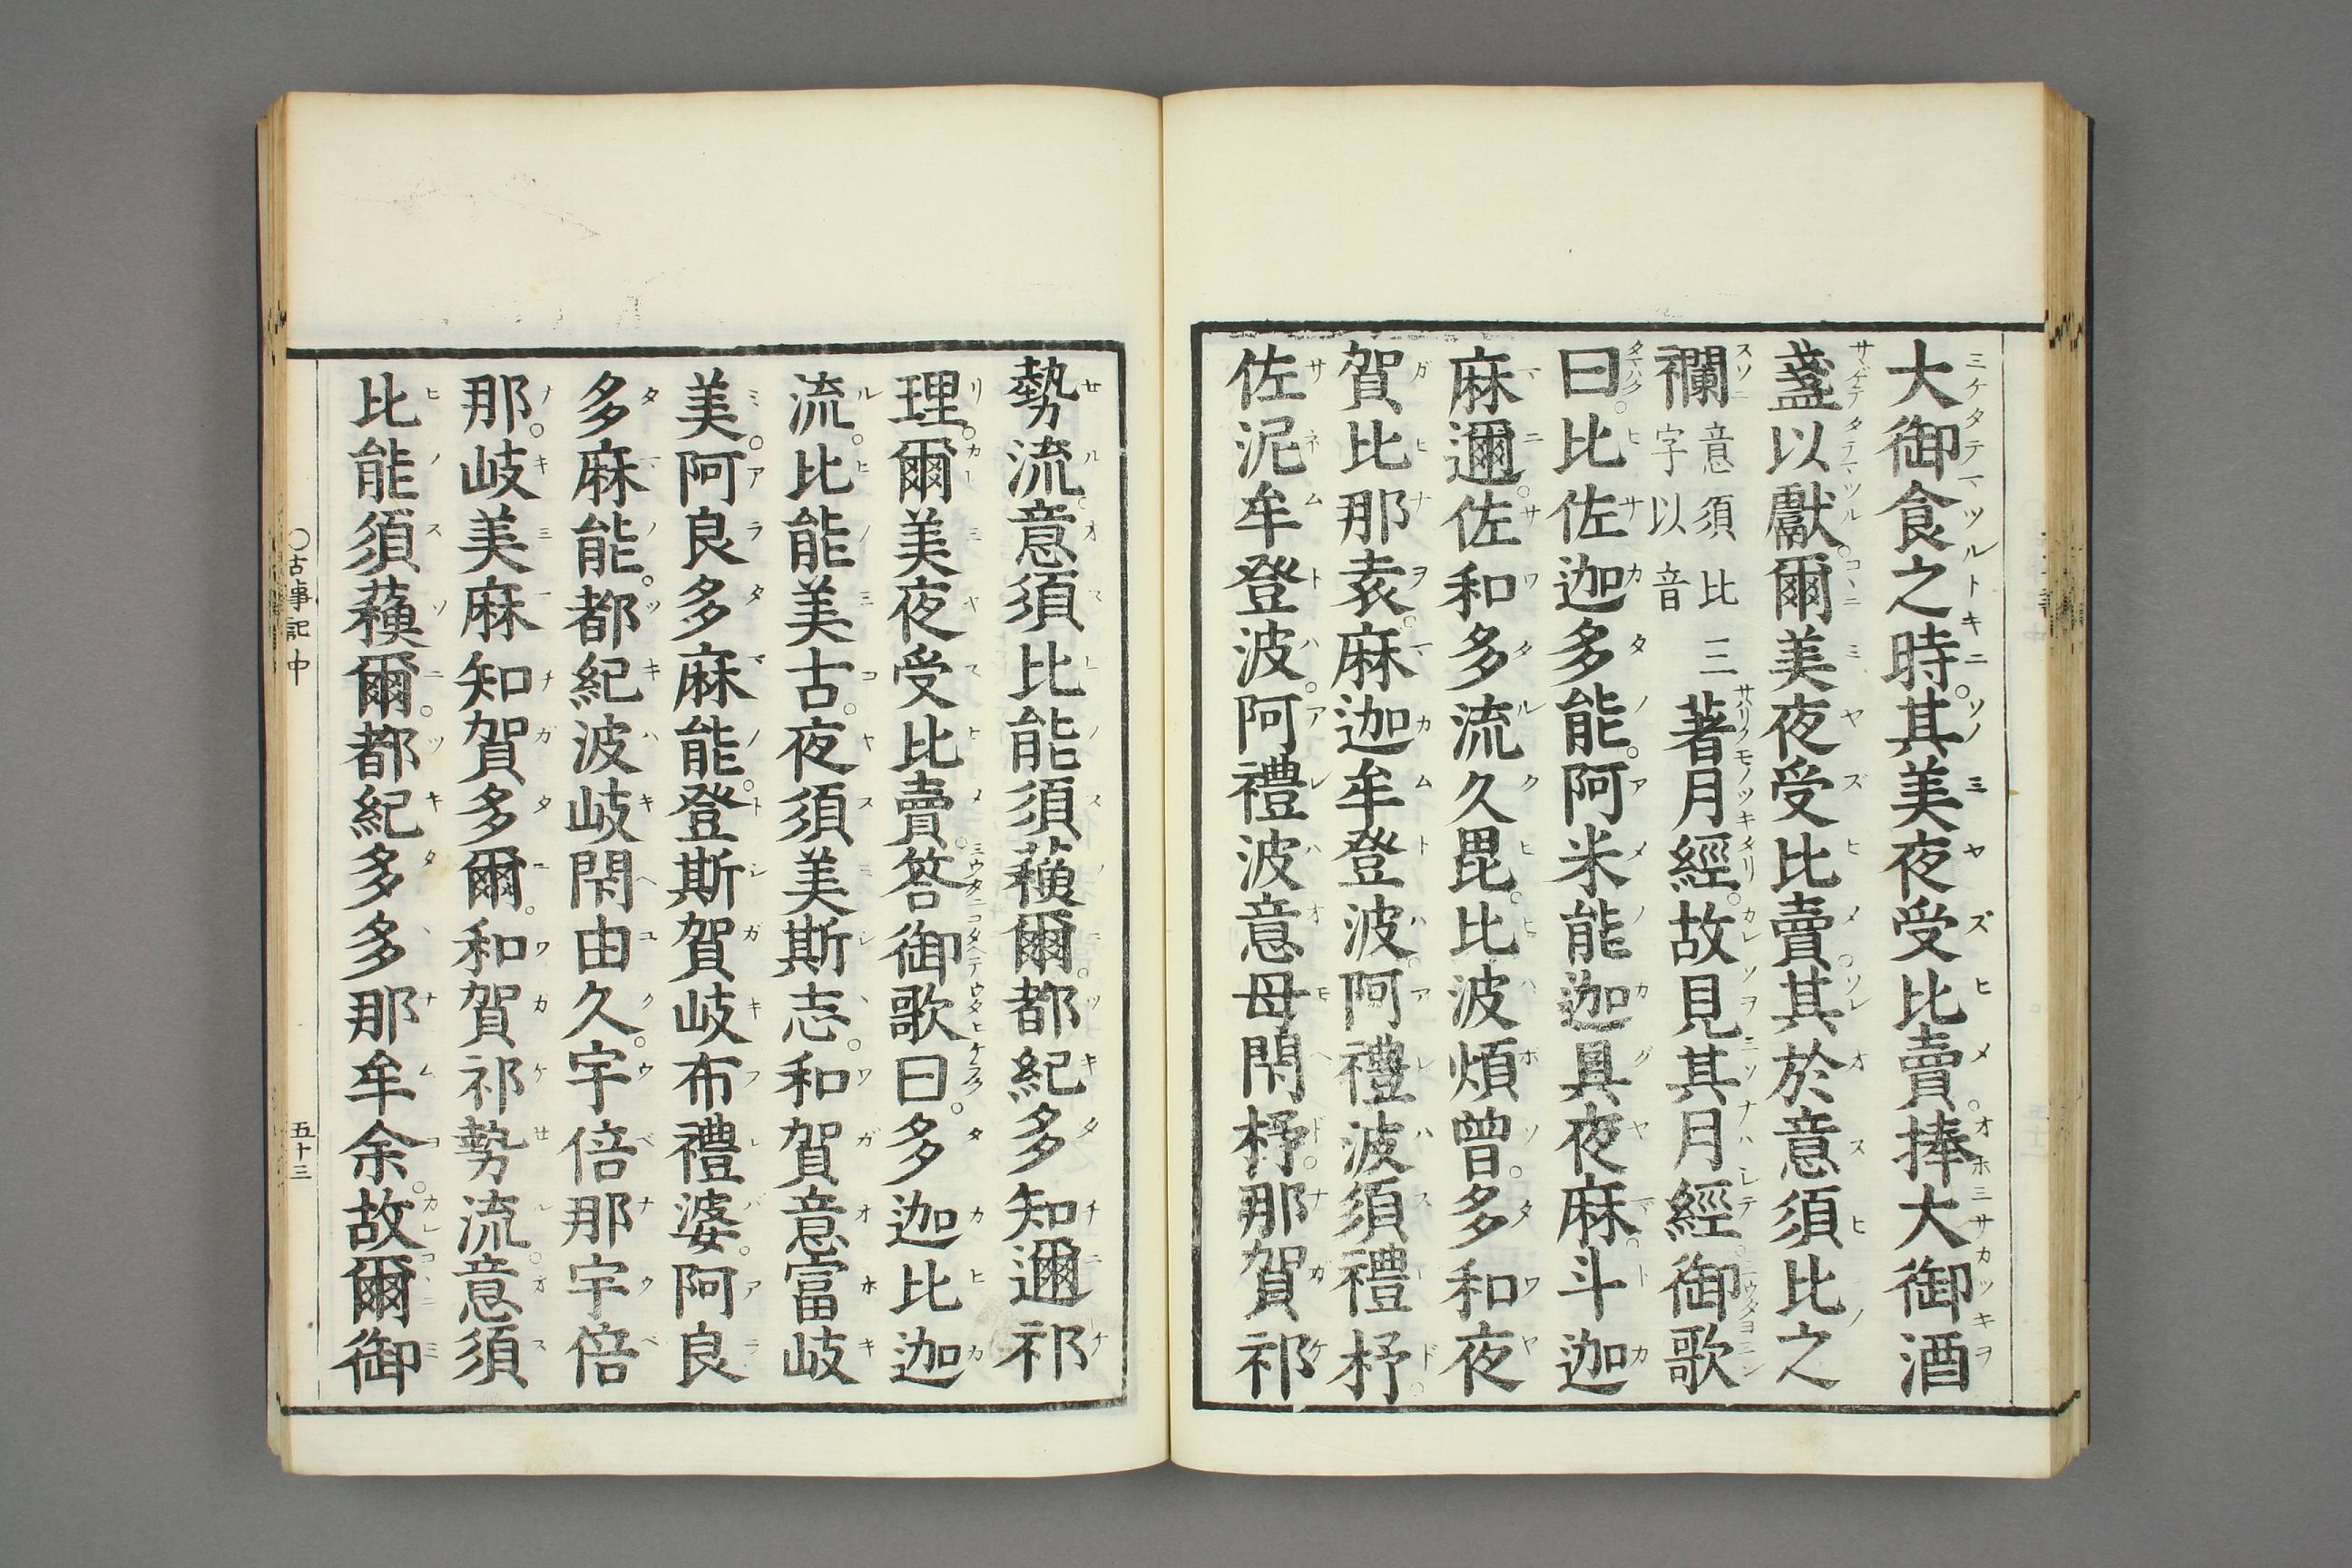 大御食之時其美夜受比賣捧大御酒
盞以獻爾美夜受比賣其於意須比之
襴意須比三字以音著月經故見其月經御歌
曰比佐迦多能阿米能迦具夜麻斗迦
麻邇佐和多流久毘比波煩曾多和夜
賀比那袁麻迦牟登波阿禮波須禮杼
佐泥牟登波阿禮波意母閇杼那賀祁
勢流意須比能須蘓爾都紀多知邇祁
理爾美夜受比賣答御歌曰多迦比迦
流比能美古夜須美斯志和賀意富岐
美阿良多麻能登斯賀岐布禮婆阿良
多麻能都紀波岐閇由久宇倍那宇倍
那岐美麻知賀多爾和賀祁勢流意須
比能須蘓爾都紀多多那牟余故爾御
○古事記中 五十三